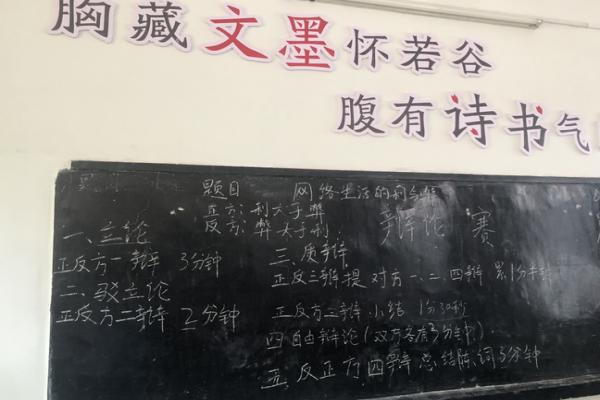 胸藏文墨怀若谷
腹有诗书气
题目 网络生活的利与弊
正方:利大于弊
反方:弊大于利
辩论赛
一、立论
正反方一辩 3分钟
二、驳立论
正反方二辩 2分钟
三、质辩
正反三辩提对方一、二、四辩 累1分半钟
正反方三辩小结 1分30秒
四自由辩论(双方各有3分钟)
五、反正方四辩总结陈词3分钟